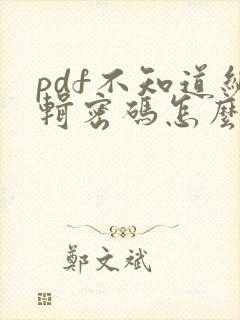 pdf不知道編
輯密碼怎麼
鄭文斌